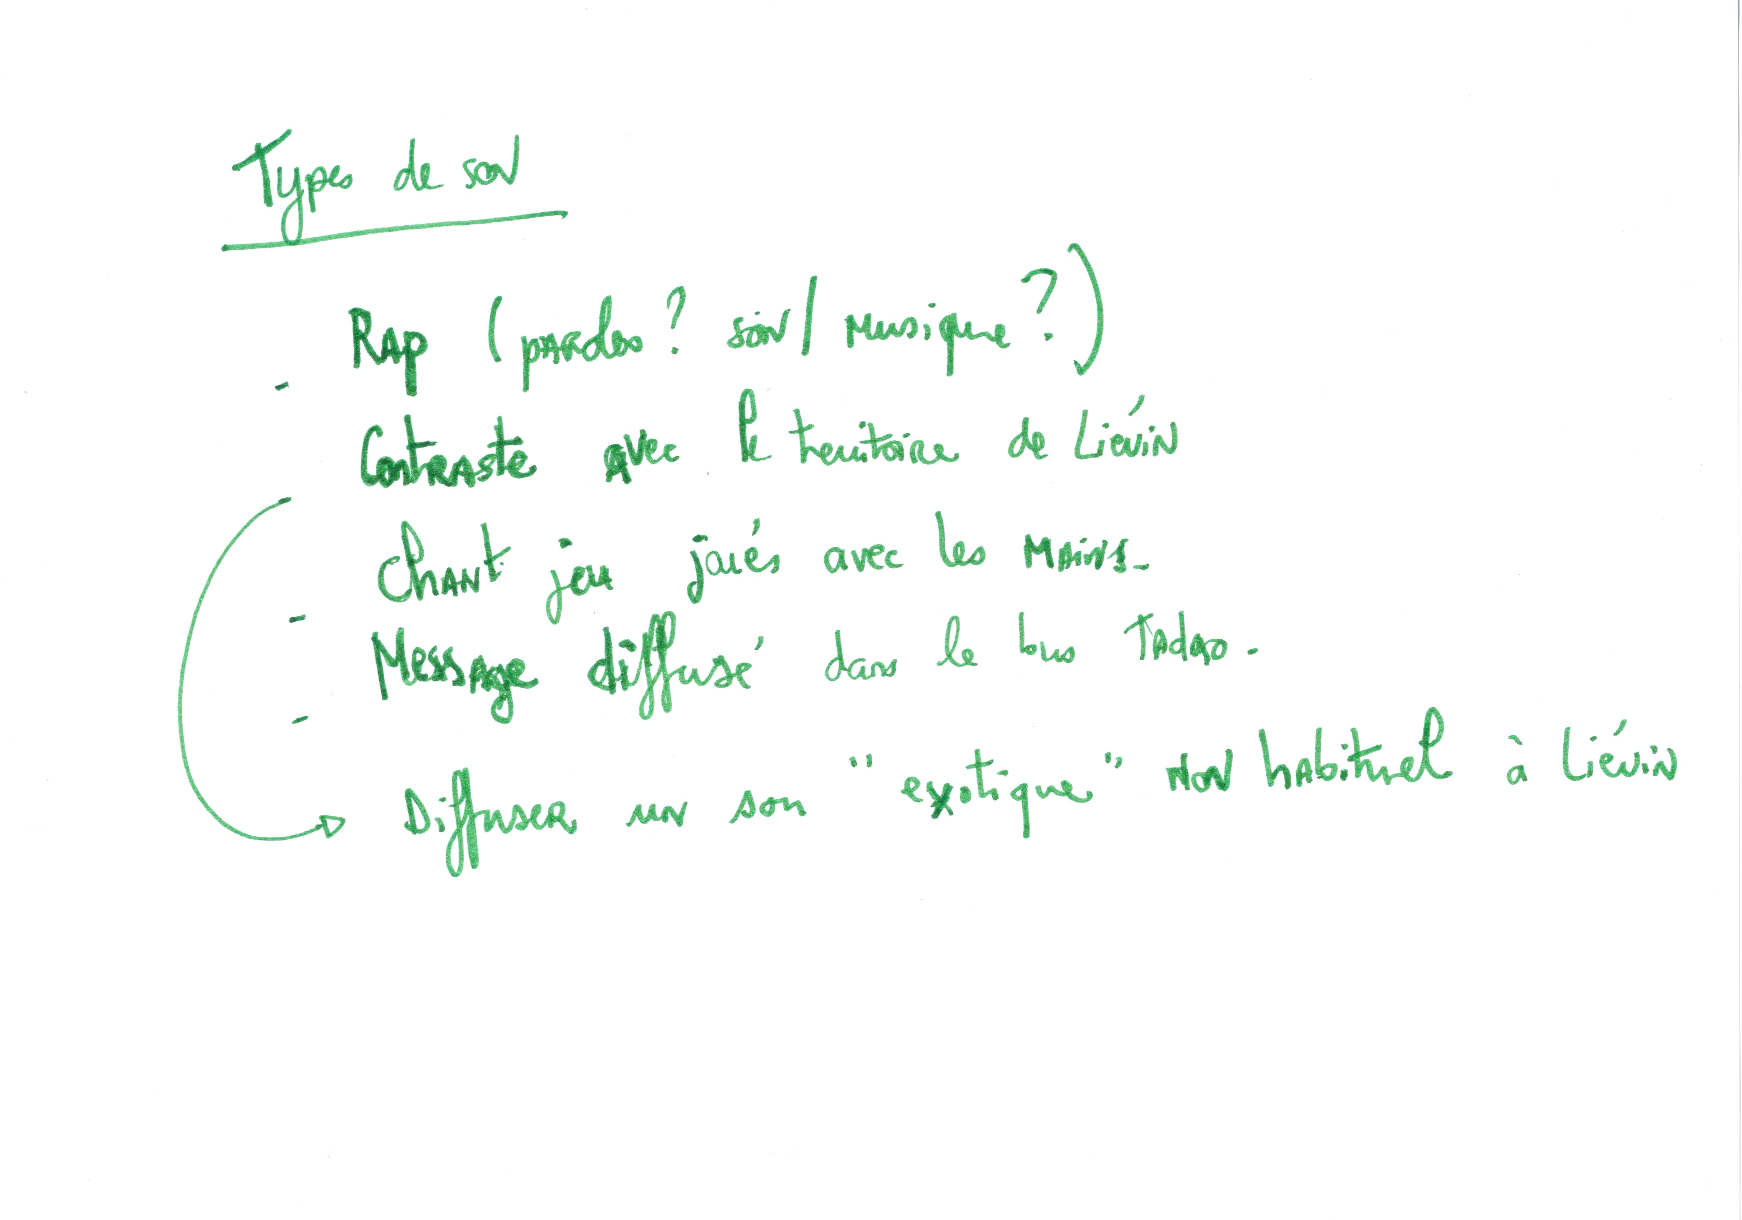 Types de son
- Rap (paroles? son/musique?)
- Contraste avec le territoire de Liévin
- Chant jeu joués avec les mains.
- Message diffusé dans le bus Tadao.
Diffuser un son "exotique" non habituel à Liévin